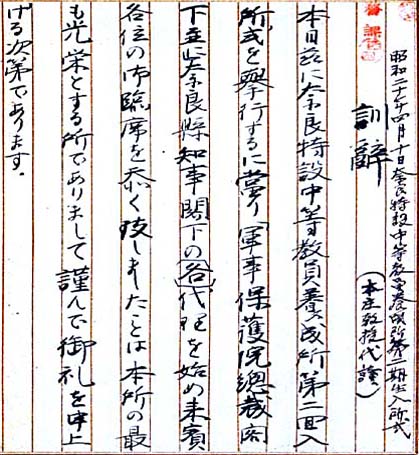 昭和二十年四月十日奈良特設中等教員養成所第二期生入所式
訓辭
(本庄教授代讀)
本日茲に奈良特設中等教員養成所第二回入
所式を擧行するに當り軍事保護院總裁閣
下並に奈良縣知事閣下の(各)代理を始め来賓
各位の御臨席を忝く致しましたことは本所の最
も光栄とする所でありまして謹んで御礼を申上
げる次第であります。